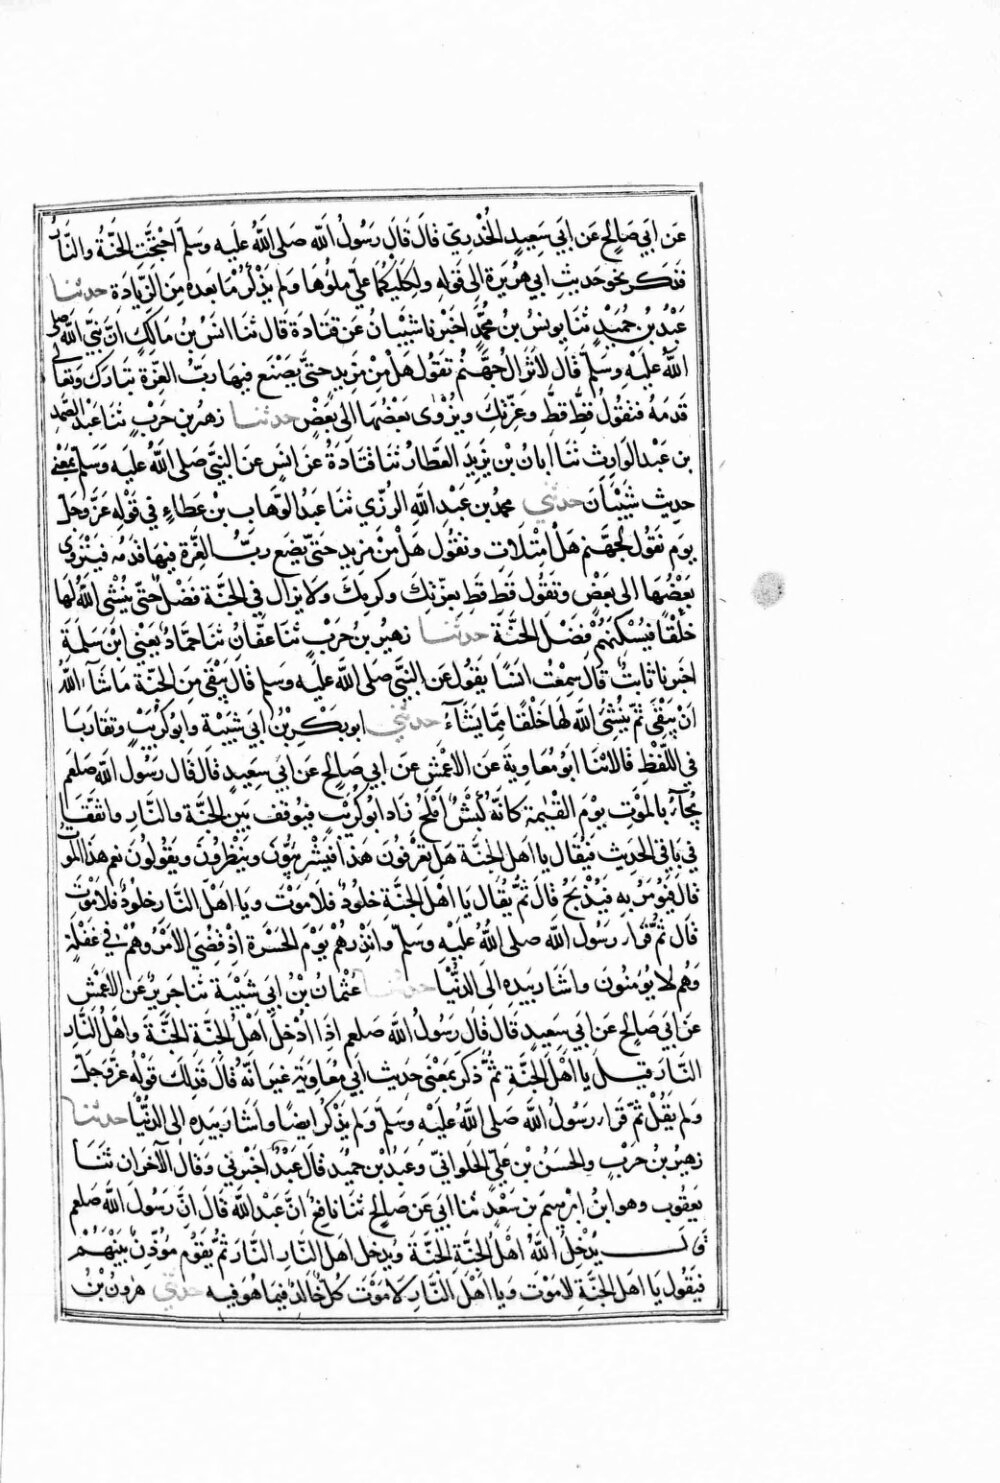 عن ابي صالح عن ابي سعيد الخدري قال قال رسول الله صلى الله عليه وسلم احتجت الجنة والنار
فذكر نحو حديث ابي هريرة الى قوله ولكليكما علي ملؤها ولم يذكر ما بعده من الزيادة حدثنا
عبد بن حميد ثنا يونس بن محمد اخبرنا شيبان عن قتادة قال ثنا انس بن مالك ان نبي الله صلى
الله عليه وسلم قال لا تزال جهنم تقول هل من مزيد حتى يضع فيها رب العزة تبارك وتعالى
قدمه فتقول قط قط وعزتك ويزوى بعضها الى بعض حدثنا زهير بن حرب ثنا عبد الصمد
بن عبد الوارث ثنا ابان بن يزيد العطار ثنا قتادة عن انس عن النبي صلى الله عليه وسلم بمعنى
حديث شيبان حدثني محمد بن عبد الله الرزي ثنا عبد الوهاب بن عطاء في قوله عز وجل
يوم نقول لجهنم هل امتلات وتقول هل من مزيد حتى يضع رب العزة فيها قدمه فينزوي
بعضها الى بعض وتقول قط قط بعزتك وكرمك ولا يزال في الجنة فضل حتى ينشئ الله لها
خلقا فيسكنهم فضل الجنة حدثنا زهير بن حرب ثنا عفان ثنا حماد يعني ابن سلمة
اخبرنا ثابت قال سمعت انسا يقول عن النبي صلى الله عليه وسلم قال يبقى من الجنة ما شاء الله
ان يبقى ثم ينشئ الله لها خلقا مما يشاء حدثني ابو بكر بن ابي شيبة وابو كريب وتقاربا
في اللفظ قالا ثنا ابو معاوية عن الاعمش عن ابي صالح عن ابي سعيد قال قال رسول الله صلعم
يجاء بالموت يوم القيمة كانه كبش املح زاد ابو كريب فيوقف بين الجنة والنار واتفقا
في باقي الحديث فيقال يا اهل الجنة هل تعرفون هذا فيشرئبون وينظرون ويقولون نعم هذا الموت
قال فيؤمر به فيذبح قال ثم يقال يا اهل الجنة خلود فلا موت ويا اهل النار خلود فلا موت
قال ثم قرا رسول الله صلى الله عليه وسلم وانذرهم يوم الحسرة اذ قضي الامر وهم في غفلة
وهم لا يؤمنون واشار بيده الى الدنيا حدثنا عثمان بن ابي شيبة ثنا جرير عن الاعمش
عن ابي صالح عن ابي سعيد قال قال رسول الله صلعم اذا ادخل اهل الجنة الجنة واهل النار
النار قيل يا اهل الجنة ثم ذكر بمعنى حديث ابي معاوية غير انه قال فذلك قوله عز وجل
ولم يقل ثم قرا رسول الله صلى الله عليه وسلم ولم يذكر ايضا واشار بيده الى الدنيا حدثنا
زهير بن حرب والحسن بن علي الحلواني وعبد بن حميد قال عبد اخبرني وقال الآخران ثنا
يعقوب وهو ابن ابرهيم بن سعد ثنا ابي عن صالح ثنا نافع ان عبد الله قال ان رسول الله صلعم
قال يدخل الله اهل الجنة الجنة ويدخل اهل النار النار ثم يقوم مؤذن بينهم
فيقول يا اهل الجنة لا موت ويا اهل النار لا موت كل خالد فيما هو فيه حدثني هرون بن